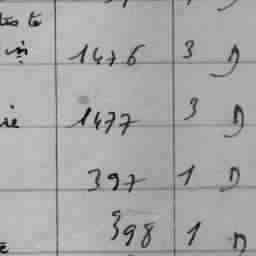 in 1476 3 D
1477 3 D
397 1 D
398 1 D